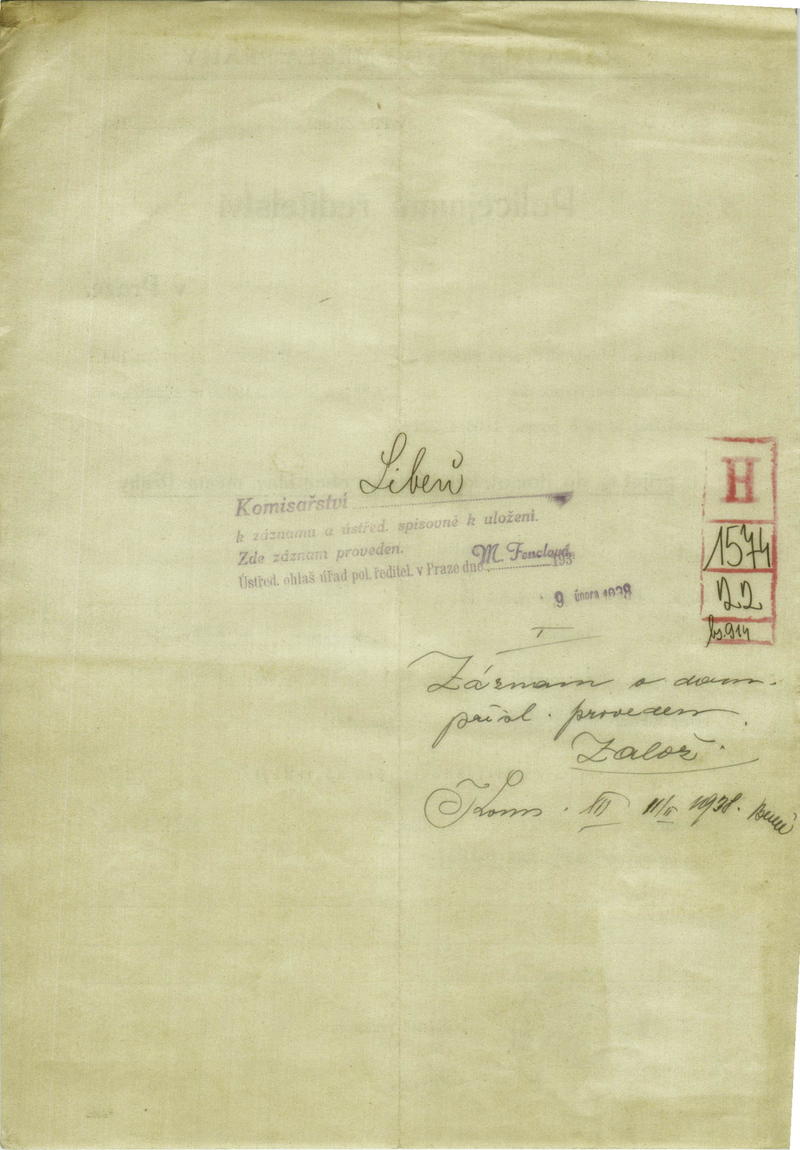 Libeň
Komisařství
k záznamu a ústřed. spisovně k uložení.
Zde záznam proveden.
M. Fenclová
Ústřed. ohlaš úřad pol. ředitel. v Praze dne 193
9 února 1938
H
1574
22
I
Záznam o dom.
přísl. proveden.
Založ.
Kom. VIII 11/II 1938.
Policejnímu ředitelství
v Praze.